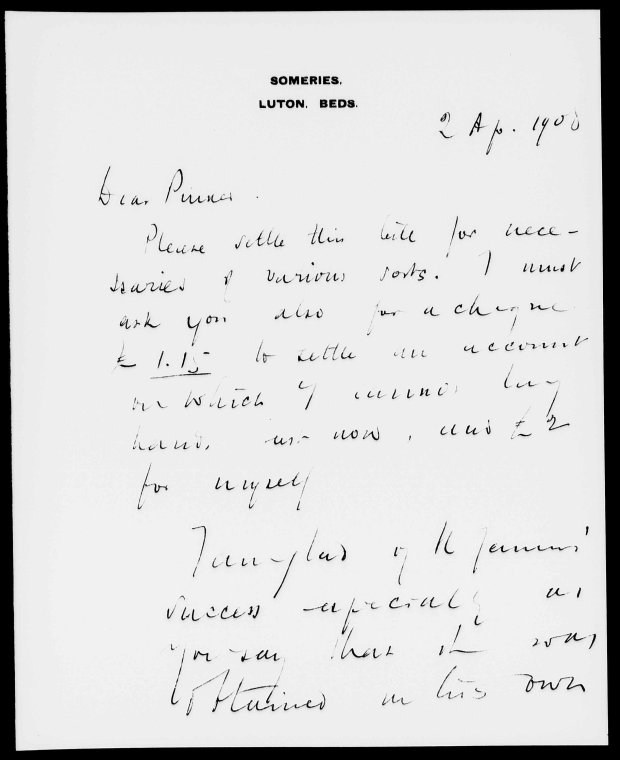 SOMERIES.
LUTON. BEDS.
2 Ap. 1908
Dear Pinner.
Please settle this bill for nece-
ssaries of various sorts. I must
ask you also for a cheque
£ 1.15 to settle an account
on which I cannot lay
hands just now, and £2
for myself
I am glad of
success especially as
you say that it was
obtained on his own